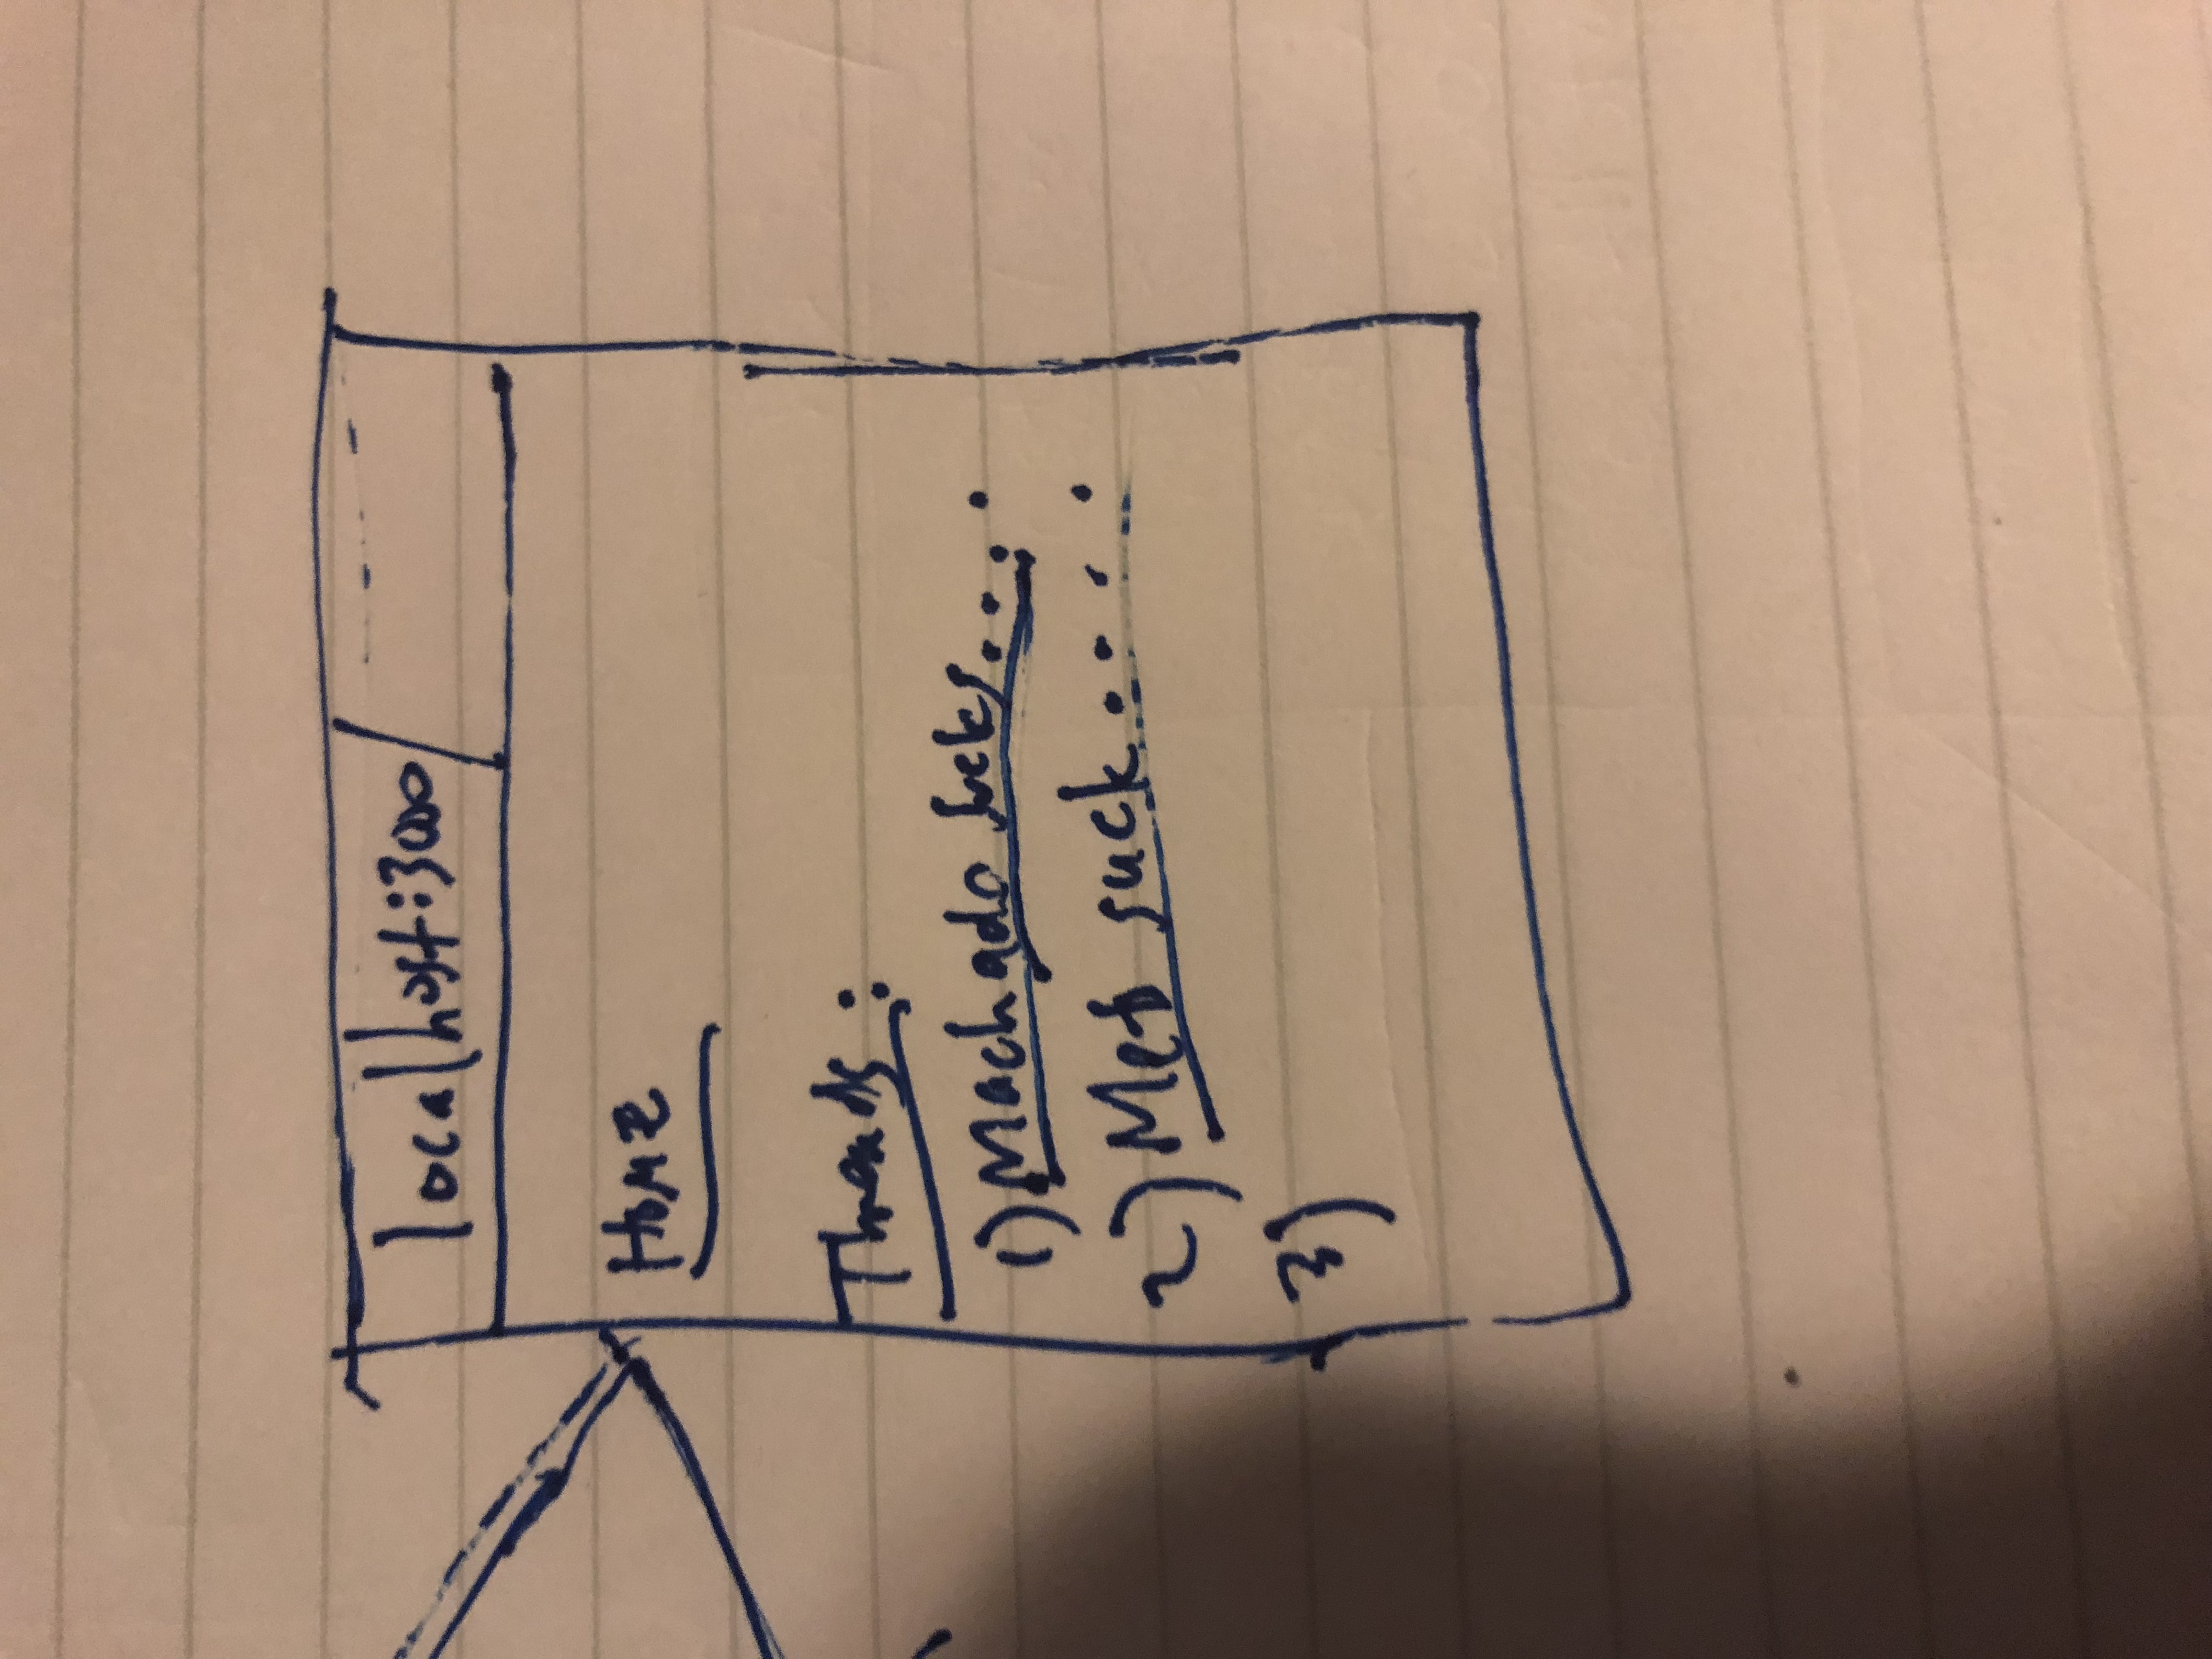 localhost:3000
Home
Threads:
1) Machado sucks....
2) Mets suck....
3)